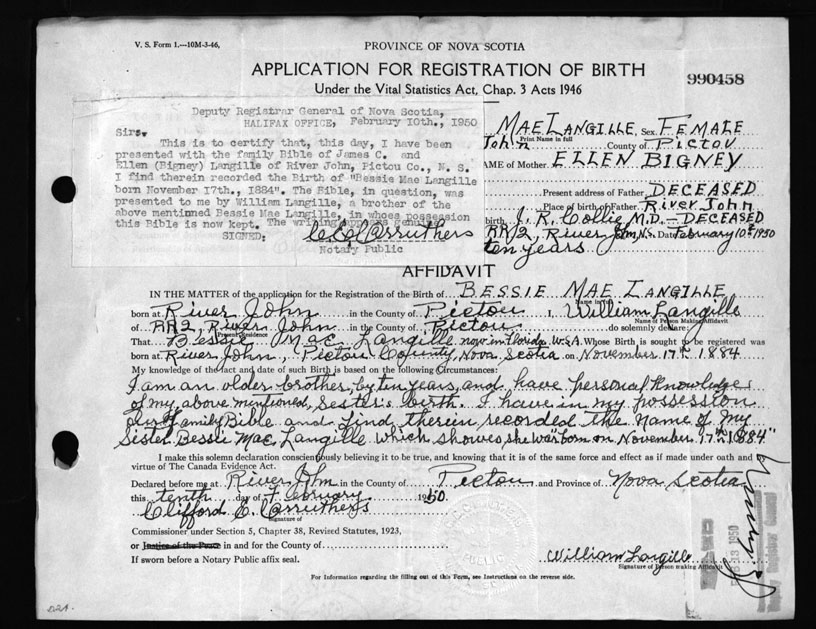 V. S. Form 1.—10M-3-46.
PROVINCE OF NOVA SCOTIA
APPLICATION FOR REGISTRATION OF BIRTH
Under the Vital Statistics Act, Chap. 3 Acts 1946
990458
Deputy Registrar General of Nova Scotia,
HALIFAX OFFICE, February 10th., 1950
Sirs.
This is to certify that, this day, I have been
presented with the family Bible of James C. and
Ellen (Bigney) Langille of River John, Pictou Co., N. S.
I find therein recorded the Birth of "Bessie Mae Langille
born November 17th., 1884". The Bible, in question, was
presented to me by William Langille, a brother of the
above mentinned Bessie Mae Langille, in whose possession
this Bible is now kept. The writing appears genuine
SIGNED:
Notary Public
MAE LANGILLE, Sex FEMALE
Print Name in full
John County of PICTOU
AME of Mother ELLEN BIGNEY
Present address of Father DECEASED
Place of birth of Father River John
birth J. R. Collie M.D. — DECEASED
RR2, River John, N.S. Date February 10th 1950
ten years
AFFIDAVIT
IN THE MATTER of the application for the Registration of the Birth of BESSIE MAE LANGILLE
Name in full
born at River John in the County of Pictou I, William Langille
Name of Person Making Affidavit
of RR2, River John in the County of Pictou do solemnly declare:
Present Residence
That Bessie Mae Langille now in Florida U.S.A. Whose Birth is sought to be registered was
born at River John, Pictou County, Nova Scotia on November 17th 1884
My knowledge of the fact and date of such Birth is based on the following Circumstances:
I am an older brother, by ten years, and have personal knowledge
of my above mentioned, sister's birth. I have in my possession
our family Bible and find therein recorded the name of my
Sister Bessie Mae Langille which showes she was "born on November 17th 1884"
I make this solemn declaration conscientiously believing it to be true, and knowing that it is of the same force and effect as if made under oath and by
virtue of The Canada Evidence Act.
Declared before me at River John in the County of Pictou and Province of Nova Scotia
this tenth day of February 1950
Clifford C. Carruthers
Signature of
Commissioner under Section 5, Chapter 38, Revised Statutes, 1923,
or Justice of the Peace in and for the County of
If sworn before a Notary Public affix seal.
William Langille
Signature of Person making Affidavit
For Information regarding the filling out of this Form, see Instructions on the reverse side.
FEB 13 1950
Deputy Registrar General